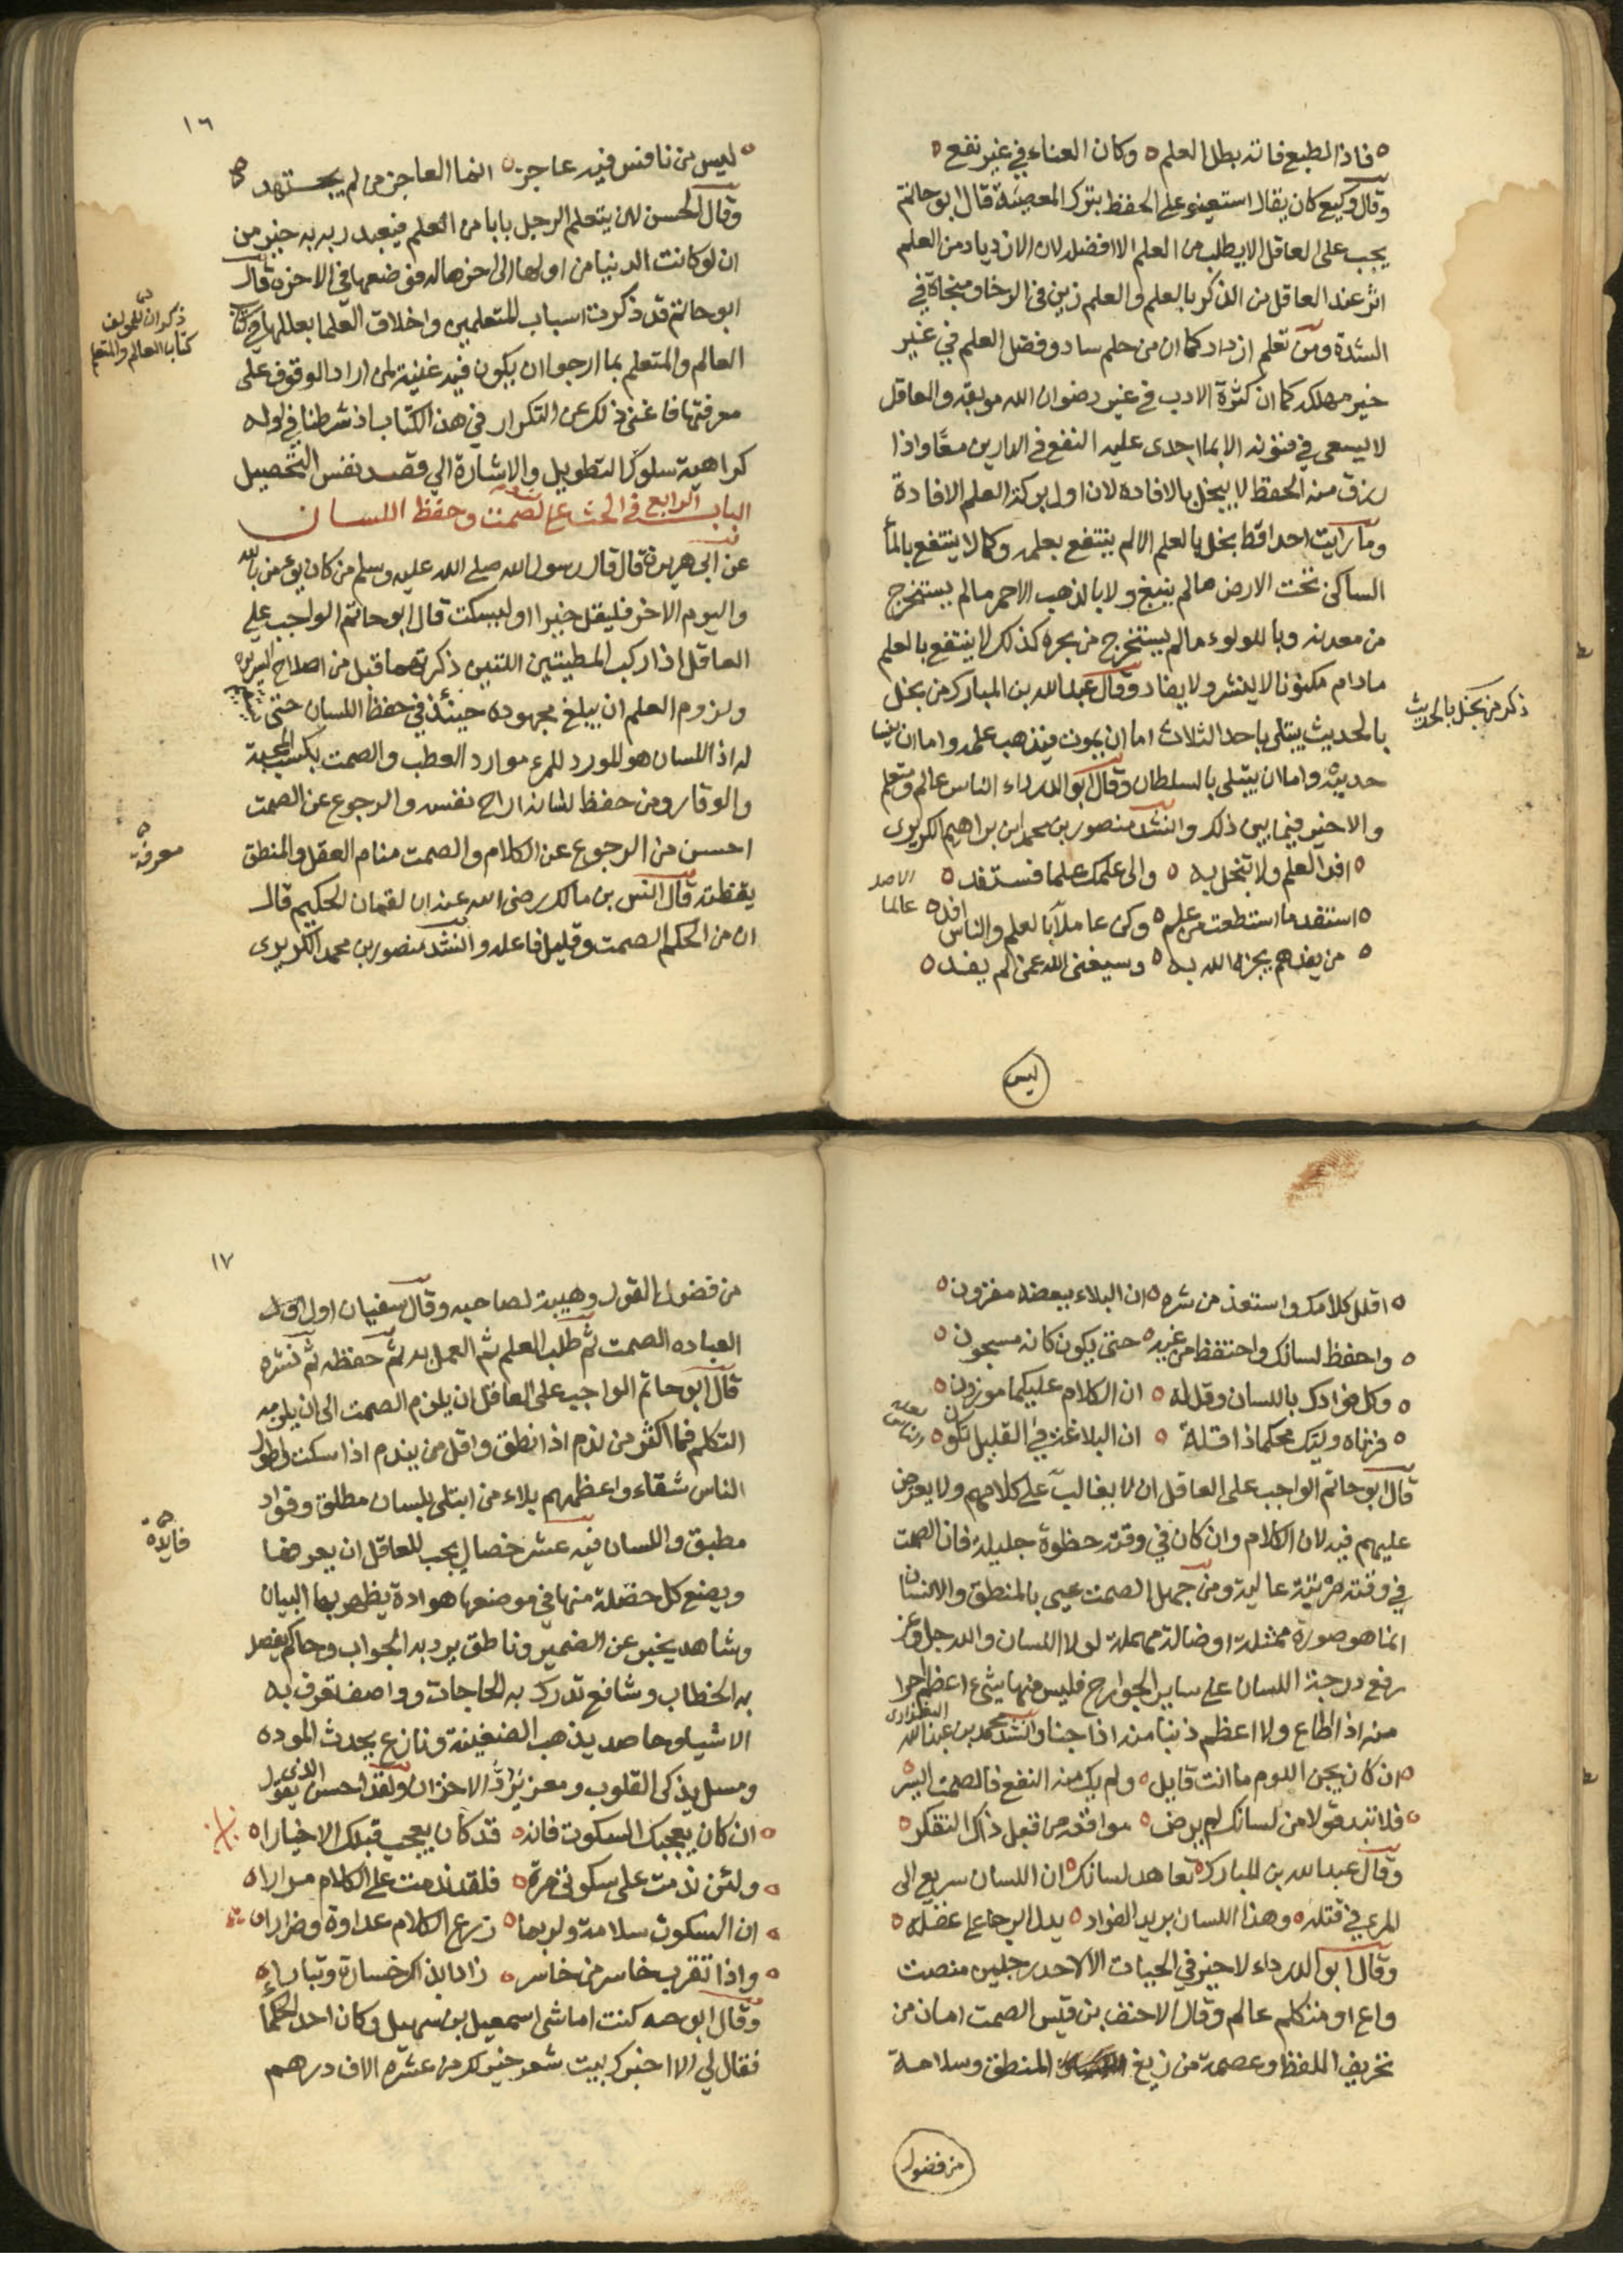 فاذا الطبع فاته بطل العلم ٥ وكان العناء في غير نفع ٥
وقال وكيع كان يقال استعينو على الحفظ بترك المعصية قال ابو حاتم
يجب على العاقل الا يطلب من العلم الا افضله لان الازدياد من العلم
اثر عند العاقل من الذكر بالعلم والعلم زين في الرخا ومنجاة في
الشدة ومن تعلم ازداد كما ان من حلم ساد وفضل العلم في غير
خير مهلكه كما ان كثرة الادب في غير رضوان الله موبقه والعاقل
لا يسعى في فنونه الا بما اجدى عليه النفع في الدارين معًا واذا
رزق منه الحفظ لا يبخل بالافاده لان اول بركة العلم الافادة
وما رايت احدا قط بخل بالعلم الا لم ينتفع بعلمه وكما لا ينتفع بالمأ
الساكن تحت الارض مالم ينبع ولا بالذهب الاحمر مالم يستخرج
من معدنه وبا للولوء مالم يستخرج من بحره كذلك لا ينتفع بالعلم
مادام مكنونا لا ينشر ولا يفاد وقال عبد الله بن المبارك من بخل
ذكر من بخل بالحديث
بالحديث يبتلى باحد الثلاث اما ان يموت فيذهب علمه واما ان ينسا
حديثه واما ان يبتلى بالسلطان وقال ابو الدرداء الناس عالم ومتعلم
والاخير فيما بين ذلك وانشد منصور بن محمد ابن براهيم الكريزى
٥ افد العلم ولا تبخل به ٥ والى علمك علما فستفد ٥
الاصل عالما
٥ استفد ما استطعت من علم ٥ وكن عاملا بالعلم والناس افد ٥
٥ من يفدهم يجزه الله به ٥ وسيغنى الله عمن لم يفد ٥
ليس
١٦
٥ ليس من نافس فيه عاجز ٥ انما العاجز من لم يجتهد
وقال الحسن لان يتعلم الرجل بابا من العلم فيعبد ربه به خير من
ان لو كانت الدنيا من اولها الى اخرها له فوضعها في الاخره قال
ابو حاتم قد ذكرت اسباب المتعلمين واخلاق العلما بعللها في كتاب
ذكر ان للمولف
كتاب العالم والمتعلم
العالم والمتعلم بما ارجوا ان يكون فيه غنية لمن اراد الوقوف على
معرفتها فاغنى ذلك عن التكرار في هذا الكتاب اذ شرطنا في اوله
كراهية سلوك التطويل والاشارة الي قصد نفس التحصيل
الباب الرابع في الحث على لصمت وحفظ اللسان
عن ابى هريرة قال قال رسول الله صلى الله عليه وسلم من كان يومن بالله
واليوم الاخر فليقل خيرا او ليسكت قال ابو حاتم الواجب على
العاقل اذا ركب المطيتين اللتين ذكرتهما قبل من اصلاح السريرة
ولزوم العلم ان يبلغ مجهوده حينئذ في حفظ اللسان حتى
له اذ اللسان هو المورد للمرء موارد العطب والصمت بكسب المحبة
والوقار ومن حفظ لسانه اراح نفسه والرجوع عن الصمت
احسن من الرجوع عن الكلام والصمت منام العقل والمنطق
معرفة
يقظته قال انس بن مالك رضى الله عنه ان لقمان الحكيم قال
ان من الحكم الصمت وقليل فاعله وانشد منصور بن محمد الكريزى
٥ اقلل كلامك واستعذ من شره ٥ ان البلاء ببعضه مقرون ٥
٥ واحفظ لسانك واحتفظ من غيه ٥ حتى يكون كانه مسجون ٥
٥ وكل فوادك باللسان وقل له ٥ ان الكلام عليكما موزون ٥
٥ فزناه وليك محكما ذا قلة ٥ ان البلاغة في القليل تكون ٥
قال ابو حاتم الواجب على العاقل ان لا يغالب على كلامهم ولا يعرض
عليهم فيه لان الكلام وان كان في وقته حظوة جليلة فان الصمت
في وقته مرتبة عالية ومن جهل الصمت عيي بالمنطق والانسان
انما هو صورة ممثلة او ضالة مهملة لولا اللسان والله جل وعز
رفع درجة اللسان على ساير الجوارح فليس منها شيء اعظم اجرا
منه اذا اطاع ولا اعظم ذنبا منه اذا جنا وانشد محمد بن عبد الله البغدادى
٥ ان كان يجن اليوم ما انت قايل ٥ ولم يك منه النفع فالصمت ايسر ٥
٥ فلا تبد قولا من لسانك لم يرض ٥ مواقعه من قبل ذاك التفكر ٥
وقال عبد الله بن المبارك ٥ تعاهد لسانك ٥ ان اللسان سريع الى
المرء في قتله ٥ وهذا اللسان بريد الفواد ٥ يدل الرجا على عقله ٥
وقال ابو الدرداء لا خير في الحيات الا لاحد رجلين منصت
واع او متكلم عالم وقال الاحنف بن قيس الصمت امان من
تحريف اللفظ وعصمة من زيغ المنطق وسلامة
من فضول
١٧
من فضول القول وهيبة لصاحبه وقال سفيان اول
العباده الصمت ثم طلب العلم ثم العمل به ثم حفظه ثم نشره
قال ابو حاتم الواجب على العاقل ان يلزم الصمت الى ان يلزمه
التكلم فما اكثر من ندم اذا نطق واقل من يندم اذا سكت واطول
الناس شقاء واعظمهم بلاء من ابتلى بلسان مطلق وفواد
مطبق واللسان فيه عشر خصال يجب للعاقل ان يعرفها
فايدة
ويضع كل خصلة منها في موضعها هو اداة يظهر بها البيان
وشاهد يخبر عن الضمير وناطق يرد به الجواب وحاكم يفصل
به الخطاب وشافع تدرك به الحاجات وواصف تعرف به
الاشياء وحاصد يذهب الضغينة ونازع يحدث الموده
ومسل يذكى القلوب ومعز يرد الاحزان ولقد احسن الذى يقول
٥ ان كان يعجبك السكوت فانه ٥ قد كان يعجب قبلك الاخيارا ٥
٥ ولئن ندمت على سكوتى مرة ٥ فلقد ندمت على الكلام مرارا ٥
٥ ان السكوت سلامة ولربما ٥ زرع الكلام عداوة وضرارا ٥
٥ واذا تقرب خاسر من خاسر ٥ زادا بذاك خسارة وتبارا ٥
وقال ابو كنت اماشى اسمعيل بن سهيل وكان احد الحكما
فقال لي الا اخبرك ببيت شعر خير لك من عشره الاف درهم